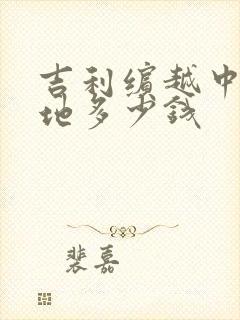 吉利缤越中
地多少钱
裴嘉